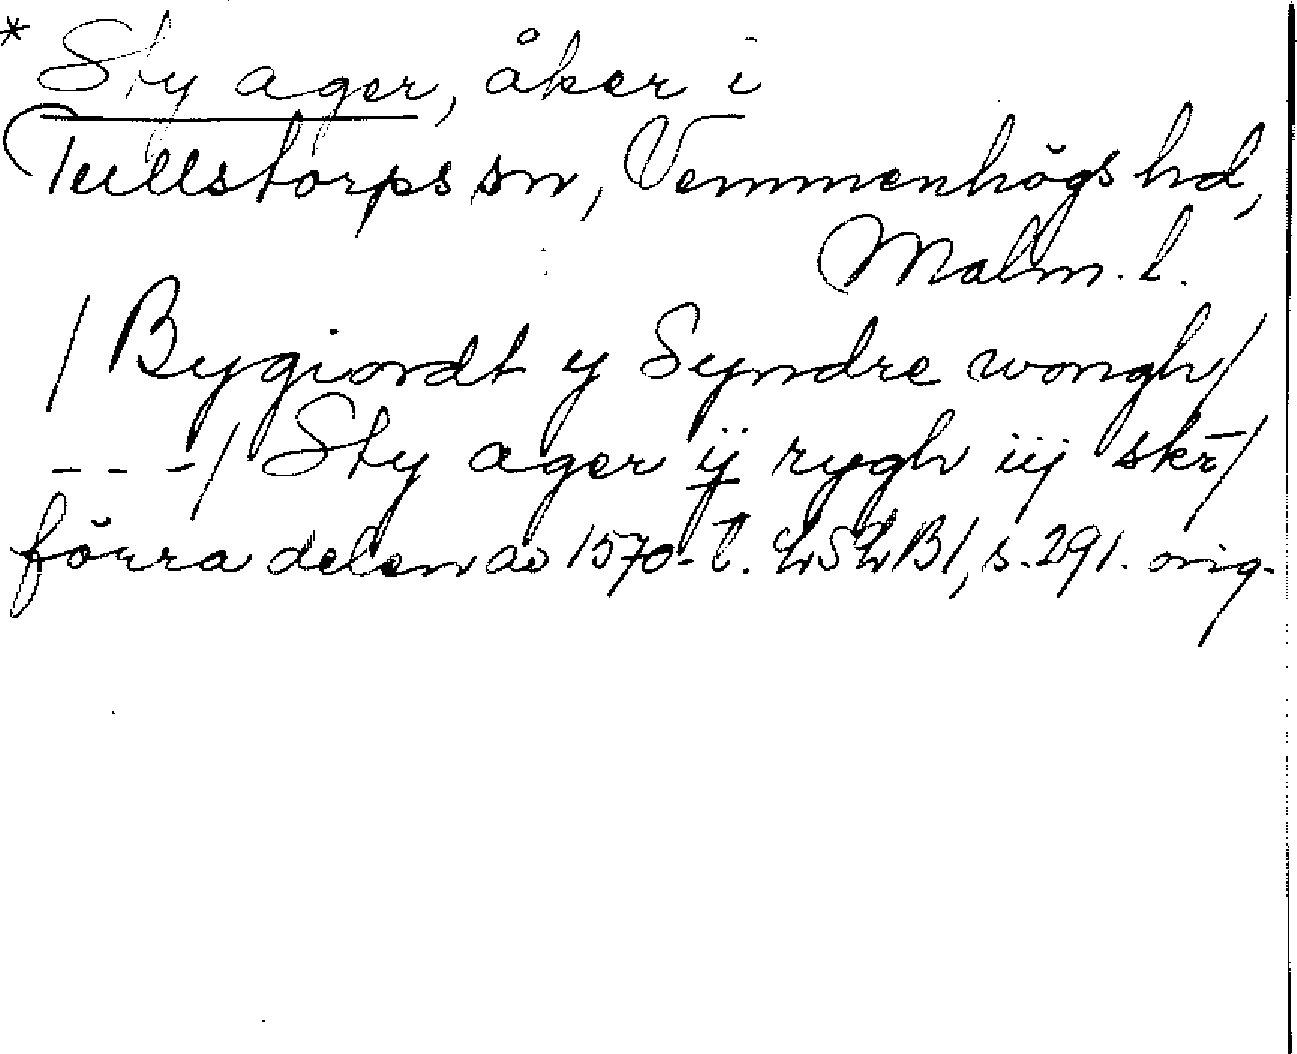 * Sty ager, åker i
Tullstorps sn, Vemmenhögs hd,
Malm. l.
/ Bygiordt y Syndre wongh/
---/ Sty ager ij rygh iij skr̄/
förra delen av 1570-t. LSLB1, s. 291. orig.